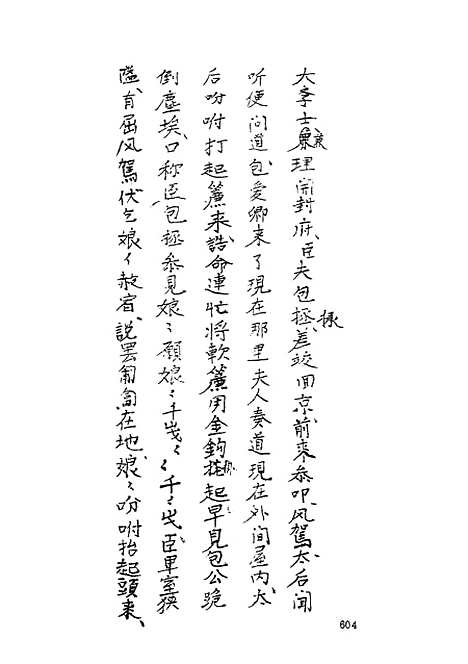 大李士兼理開封府、臣夫包拯、差竣回京、前来参叩、凤駕、太后聞
听便问道、包爱卿来了現在那里夫人奏道現在外间屋内、太
后吩咐打起簾来、誥命連忙将軟簾用金鈎掛起、早見包公跪
倒塵埃、口称臣包拯参見娘〻願娘〻千岁〻〻千〻岁、臣単室狭
隘、有屈凤駕、伏乞娘〻赦宥、説罢匍匐在地、娘〻吩咐抬起頭来、
604